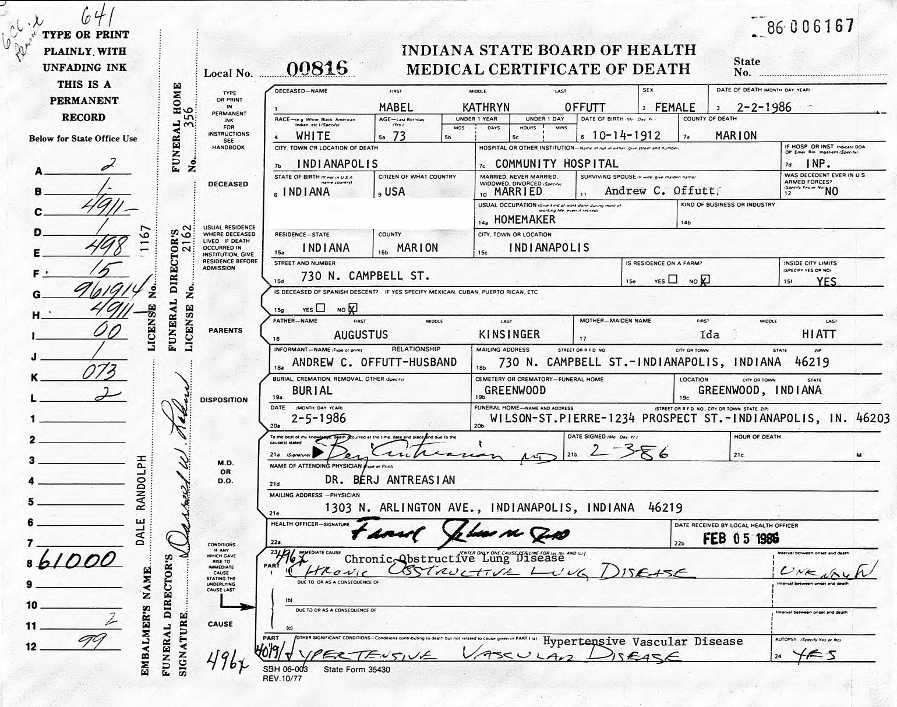 641
TYPE OR PRINT
PLAINLY, WITH
UNFADING INK
THIS IS A
PERMANENT
RECORD
Below for State Office Use
A 2
B 1
C 4911-
D 1
E 498
F 15
G 961914
H 4911-
I 00
J 1
K 073
L 2
1
2
3
4
5
6
7
8 61000
9
10
11 2
12 99
EMBALMER'S NAME DALE RANDOLPH
LICENSE No. 1167
FUNERAL DIRECTOR'S SIGNATURE
FUNERAL DIRECTOR'S LICENSE No. 2162
FUNERAL HOME No. 356
86-006167
INDIANA STATE BOARD OF HEALTH
MEDICAL CERTIFICATE OF DEATH
Local No. 00816
State No.
TYPE OR PRINT IN PERMANENT INK FOR INSTRUCTIONS SEE HANDBOOK
DECEASED
USUAL RESIDENCE WHERE DECEASED LIVED IF DEATH OCCURRED IN INSTITUTION, GIVE RESIDENCE BEFORE ADMISSION
PARENTS
DISPOSITION
M.D. OR D.O.
CONDITIONS IF ANY WHICH GAVE RISE TO IMMEDIATE CAUSE STATING THE UNDERLYING CAUSE LAST
CAUSE
DECEASED—NAME FIRST MIDDLE LAST SEX DATE OF DEATH (MONTH DAY YEAR)
1 MABEL KATHRYN OFFUTT 2 FEMALE 3 2-2-1986
RACE AGE—Last Birthday UNDER 1 YEAR UNDER 1 DAY DATE OF BIRTH COUNTY OF DEATH
MOS DAYS HOURS MINS
4 WHITE 5a 73 5b 5c 6 10-14-1912 7a MARION
CITY, TOWN OR LOCATION OF DEATH HOSPITAL OR OTHER INSTITUTION IF HOSP OR INST
7b INDIANAPOLIS 7c COMMUNITY HOSPITAL 7d INP.
STATE OF BIRTH CITIZEN OF WHAT COUNTRY MARRIED, NEVER MARRIED, WIDOWED, DIVORCED SURVIVING SPOUSE WAS DECEDENT EVER IN U.S. ARMED FORCES?
8 INDIANA 9 USA 10 MARRIED 11 Andrew C. Offutt 12 NO
USUAL OCCUPATION KIND OF BUSINESS OR INDUSTRY
14a HOMEMAKER 14b
RESIDENCE—STATE COUNTY CITY, TOWN OR LOCATION
15a INDIANA 15b MARION 15c INDIANAPOLIS
STREET AND NUMBER IS RESIDENCE ON A FARM? INSIDE CITY LIMITS (SPECIFY YES OR NO)
15d 730 N. CAMPBELL ST. 15e YES NO X 15f YES
IS DECEASED OF SPANISH DESCENT? IF YES SPECIFY MEXICAN, CUBAN, PUERTO RICAN, ETC
15g YES NO X
FATHER—NAME FIRST MIDDLE LAST MOTHER—MAIDEN NAME FIRST MIDDLE LAST
16 AUGUSTUS KINSINGER 17 Ida HIATT
INFORMANT—NAME (Type or print) RELATIONSHIP MAILING ADDRESS STREET OR R.F.D. NO CITY OR TOWN STATE ZIP
18a ANDREW C. OFFUTT-HUSBAND 18b 730 N. CAMPBELL ST.-INDIANAPOLIS, INDIANA 46219
BURIAL, CREMATION, REMOVAL, OTHER (Specify) CEMETERY OR CREMATORY—FUNERAL HOME LOCATION CITY OR TOWN STATE
19a BURIAL 19b GREENWOOD 19c GREENWOOD, INDIANA
DATE (MONTH DAY YEAR) FUNERAL HOME—NAME AND ADDRESS (STREET OR R.F.D. NO., CITY OR TOWN, STATE, ZIP)
20a 2-5-1986 20b WILSON-ST.PIERRE-1234 PROSPECT ST.-INDIANAPOLIS, IN. 46203
To the best of my knowledge, death occurred at the time, date and place and due to the cause(s) stated DATE SIGNED (Mo. Day, Yr.) HOUR OF DEATH
21a (Signature) Berj Antreasian MD 21b 2-3-86 21c M
NAME OF ATTENDING PHYSICIAN (Type or Print)
21d DR. BERJ ANTREASIAN
MAILING ADDRESS—PHYSICIAN
21e 1303 N. ARLINGTON AVE., INDIANAPOLIS, INDIANA 46219
HEALTH OFFICER—SIGNATURE DATE RECEIVED BY LOCAL HEALTH OFFICER
22a 22b FEB 05 1986
23 496x IMMEDIATE CAUSE (ENTER ONLY ONE CAUSE PER LINE FOR (a), (b), AND (c)) Interval between onset and death
Chronic Obstructive Lung Disease
PART I CHRONIC OBSTRUCTIVE LUNG DISEASE UNKNOWN
DUE TO, OR AS A CONSEQUENCE OF Interval between onset and death
(b)
DUE TO OR AS A CONSEQUENCE OF Interval between onset and death
(c)
PART OTHER SIGNIFICANT CONDITIONS—Conditions contributing to death but not related to cause given in PART I (a) Hypertensive Vascular Disease AUTOPSY (Specify Yes or No)
HYPERTENSIVE VASCULAR DISEASE 24 YES
496x
SBH 06-003 State Form 35430
REV.10/77